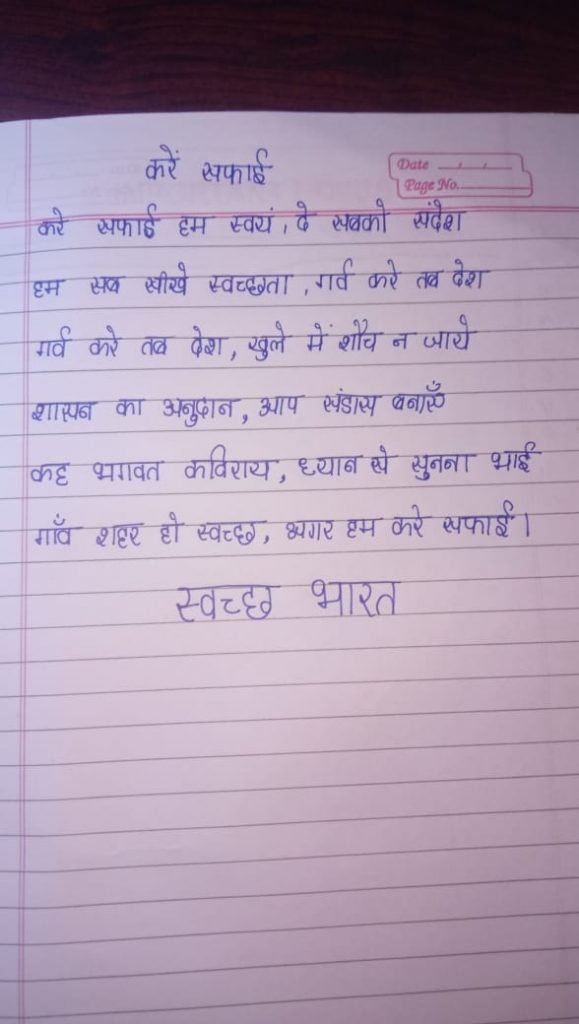 करें सफाई
Date
Page No.
करे सफाई हम स्वयं, दे सबको संदेश
हम सब सीखे स्वच्छता, गर्व करे तब देश
गर्व करे तब देश, खुले में शौच न जाये
शासन का अनुदान, आप संडास बनाएँ
कह भगवत कविराय, ध्यान से सुनना भाई
गाँव शहर हो स्वच्छ, अगर हम करे सफाई।
स्वच्छ भारत